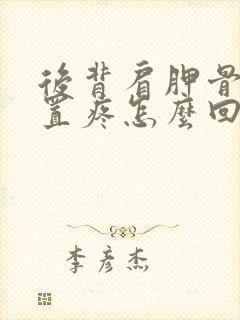 後背肩胛骨
置疼怎麼回
李彦杰